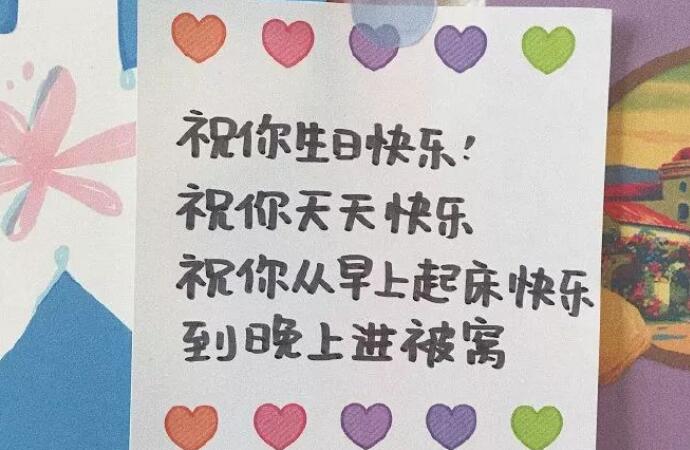 祝你生日快乐！
祝你天天快乐
祝你从早上起床快乐
到晚上进被窝